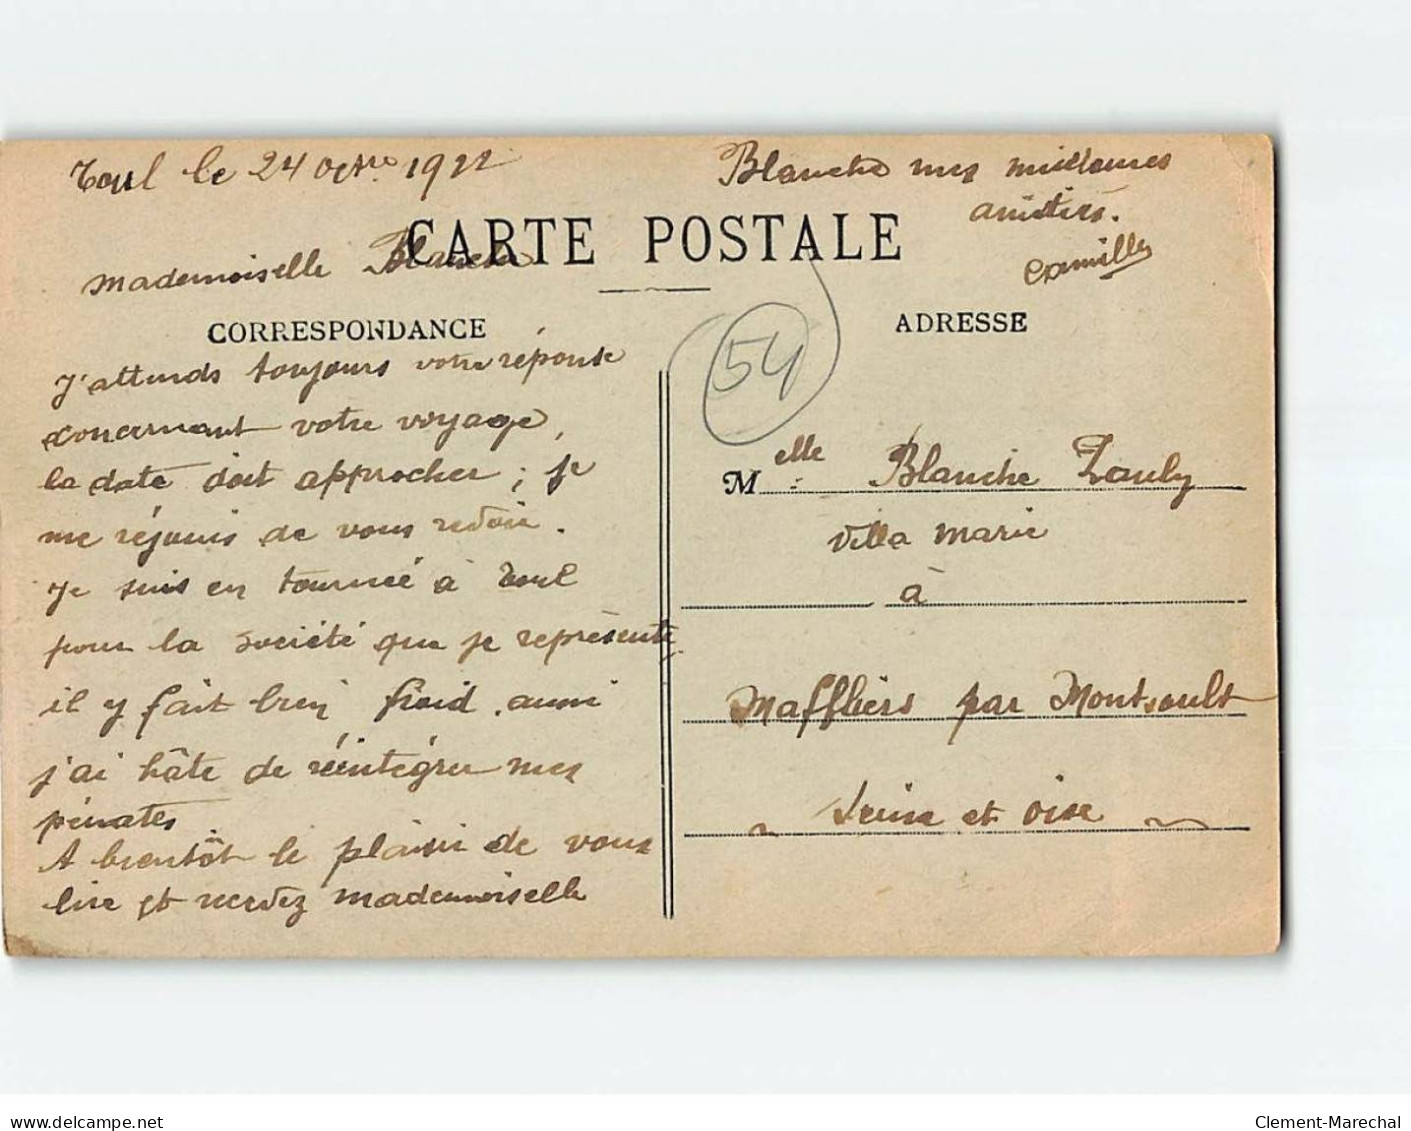 Toul le 24 Octre 1922
Blanche mes meilleures
amitiés.
Camille
CARTE POSTALE
Mademoiselle Blanche
CORRESPONDANCE
J'attends toujours votre réponse
concernant votre voyage,
la date doit approcher ; je
me réjouis de vous revoir.
Je suis en tournée à Toul
pour la société que je représente,
il y fait bien froid, aussi
j'ai hâte de réintégrer mes
pénates
A bientôt le plaisir de vous
lire et recevez mademoiselle
54
ADRESSE
Melle Blanche Pauly
Villa Marie
à
Maffliers par Montsoult
Seine et Oise
www.delcampe.net
Clement-Marechal